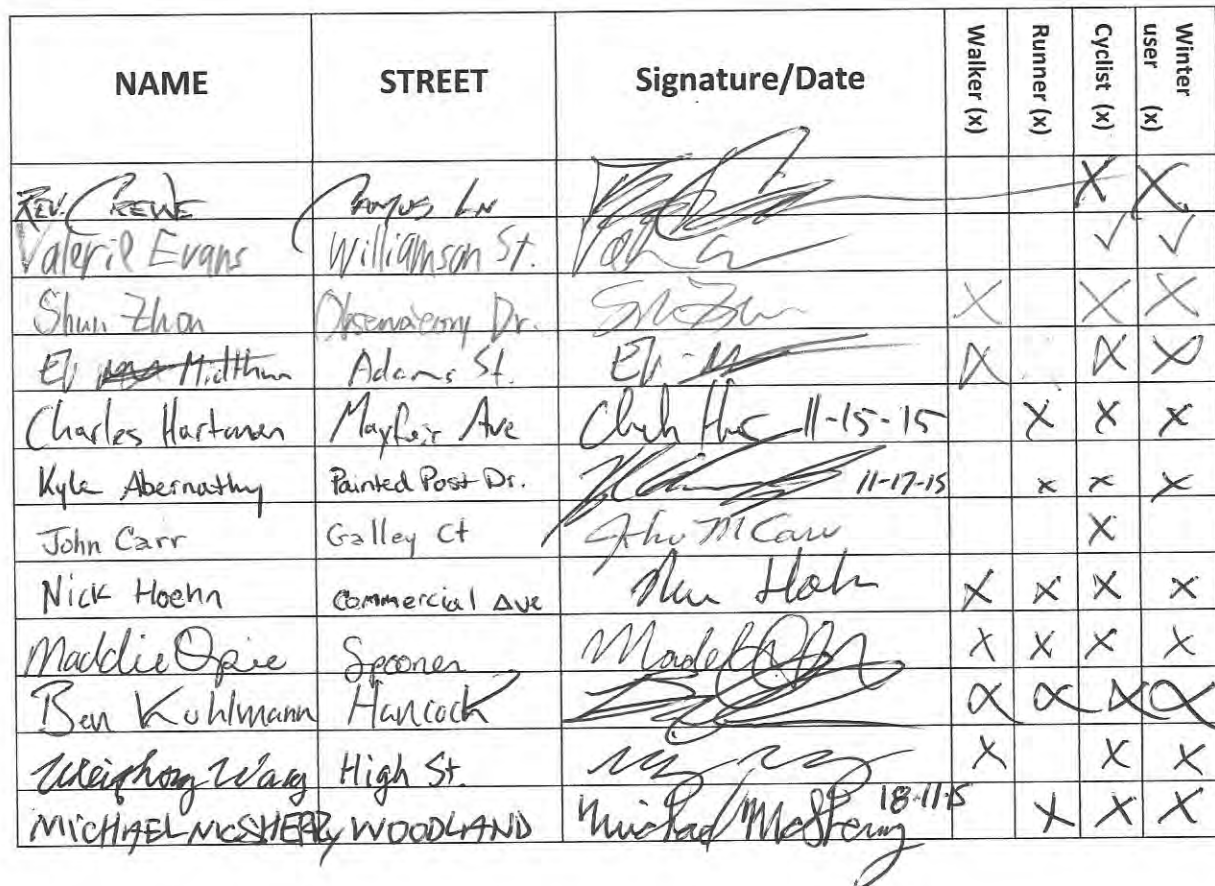 NAME STREET Signature/Date Walker (x) Runner (x) Cyclist (x) Winter user (x)
REV. CREWE CAMPUS LN X X
Valerie Evans Williamson St. ✓ ✓
Shun Zhou Observatory Dr. X X X
Eli Midthun Adams St. Eli X X X
Charles Hartman Mayfair Ave 11-15-15 X X X
Kyle Abernathy Painted Post Dr. 11-17-15 x x x
John Carr Galley Ct John M Carr X
Nick Hoehn Commercial Ave X X X X
Maddie Opie Spooner X X X X
Ben Kuhlmann Hancock X X X X
Wang High St. X X X
MICHAEL MCSHERRY WOODLAND Michael McSherry 18-11-15 X X X